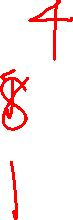 4
8
1